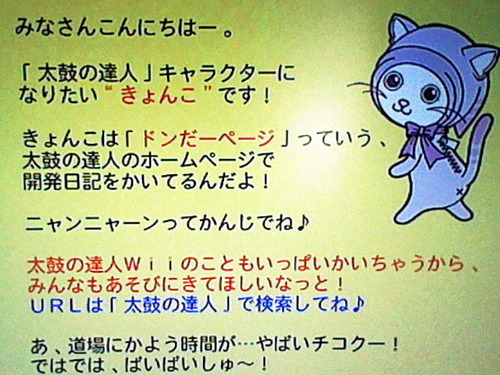 みなさんこんにちはー。
「太鼓の達人」キャラクターに
なりたい“きょんこ”です！
きょんこは「ドンだーページ」っていう、
太鼓の達人のホームページで
開発日記をかいてるんだよ！
ニャンニャーンってかんじでね♪
太鼓の達人Ｗｉｉのこともいっぱいかいちゃうから、
みんなもあそびにきてほしいなっと！
ＵＲＬは「太鼓の達人」で検索してね♪
あ、道場にかよう時間が…やばいチコクー！
ではでは、ばいばいしゅ〜！